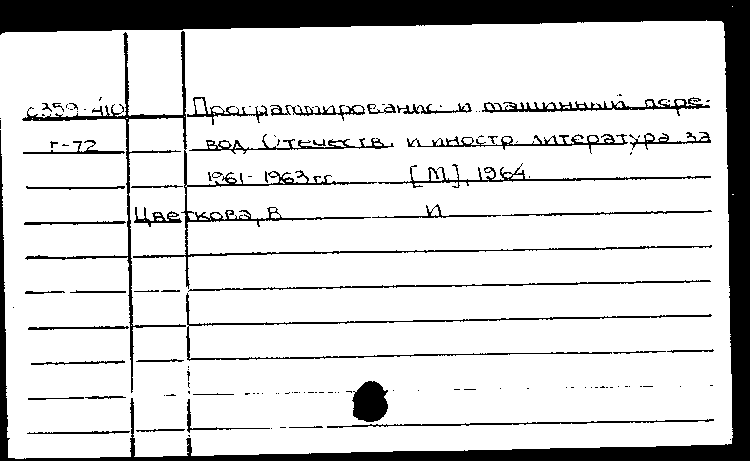 с359-410 Программирование и машинный пере-
г-72 вод. Отечеств. и иностр. литература за
1961-1963 гг. [М], 1964.
Цветкова, В И